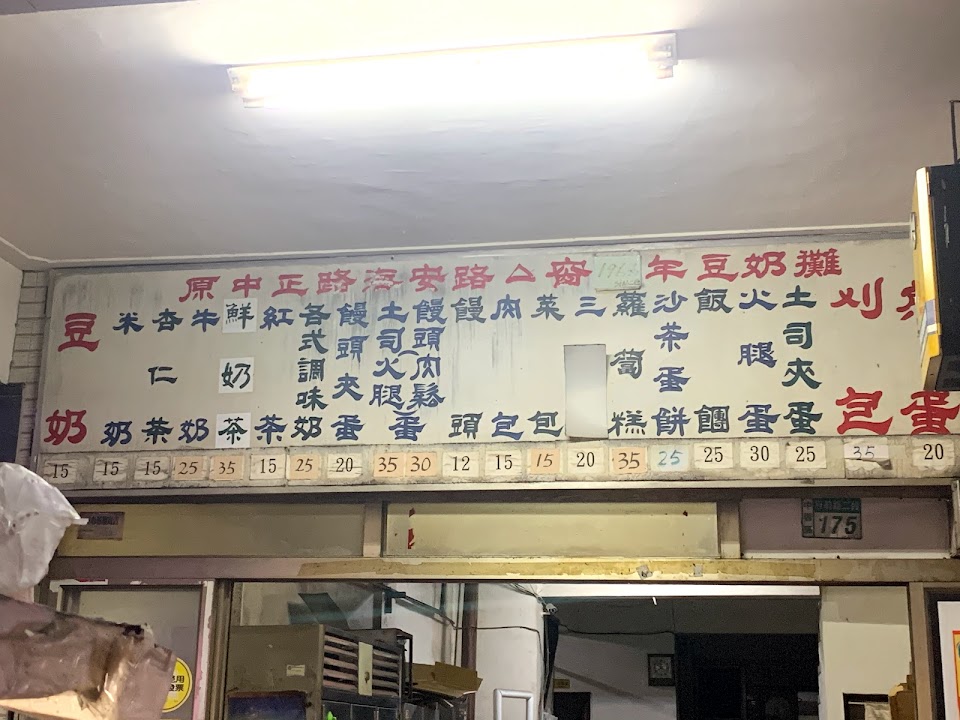 原中正路海安路
年豆奶攤
豆奶
米奶
杏仁茶
牛奶
鮮奶茶
紅茶
各式調味奶
饅頭夾蛋
土司火腿
饅頭肉鬆
蛋
饅頭
肉包
菜包
三
蘿蔔糕
沙茶蛋餅
飯團
火腿蛋
土司夾蛋
刈包
蛋
15 15 15 25 35 15 25 20 35 30 12 15 15 20 35 25 25 30 25 35 20
175